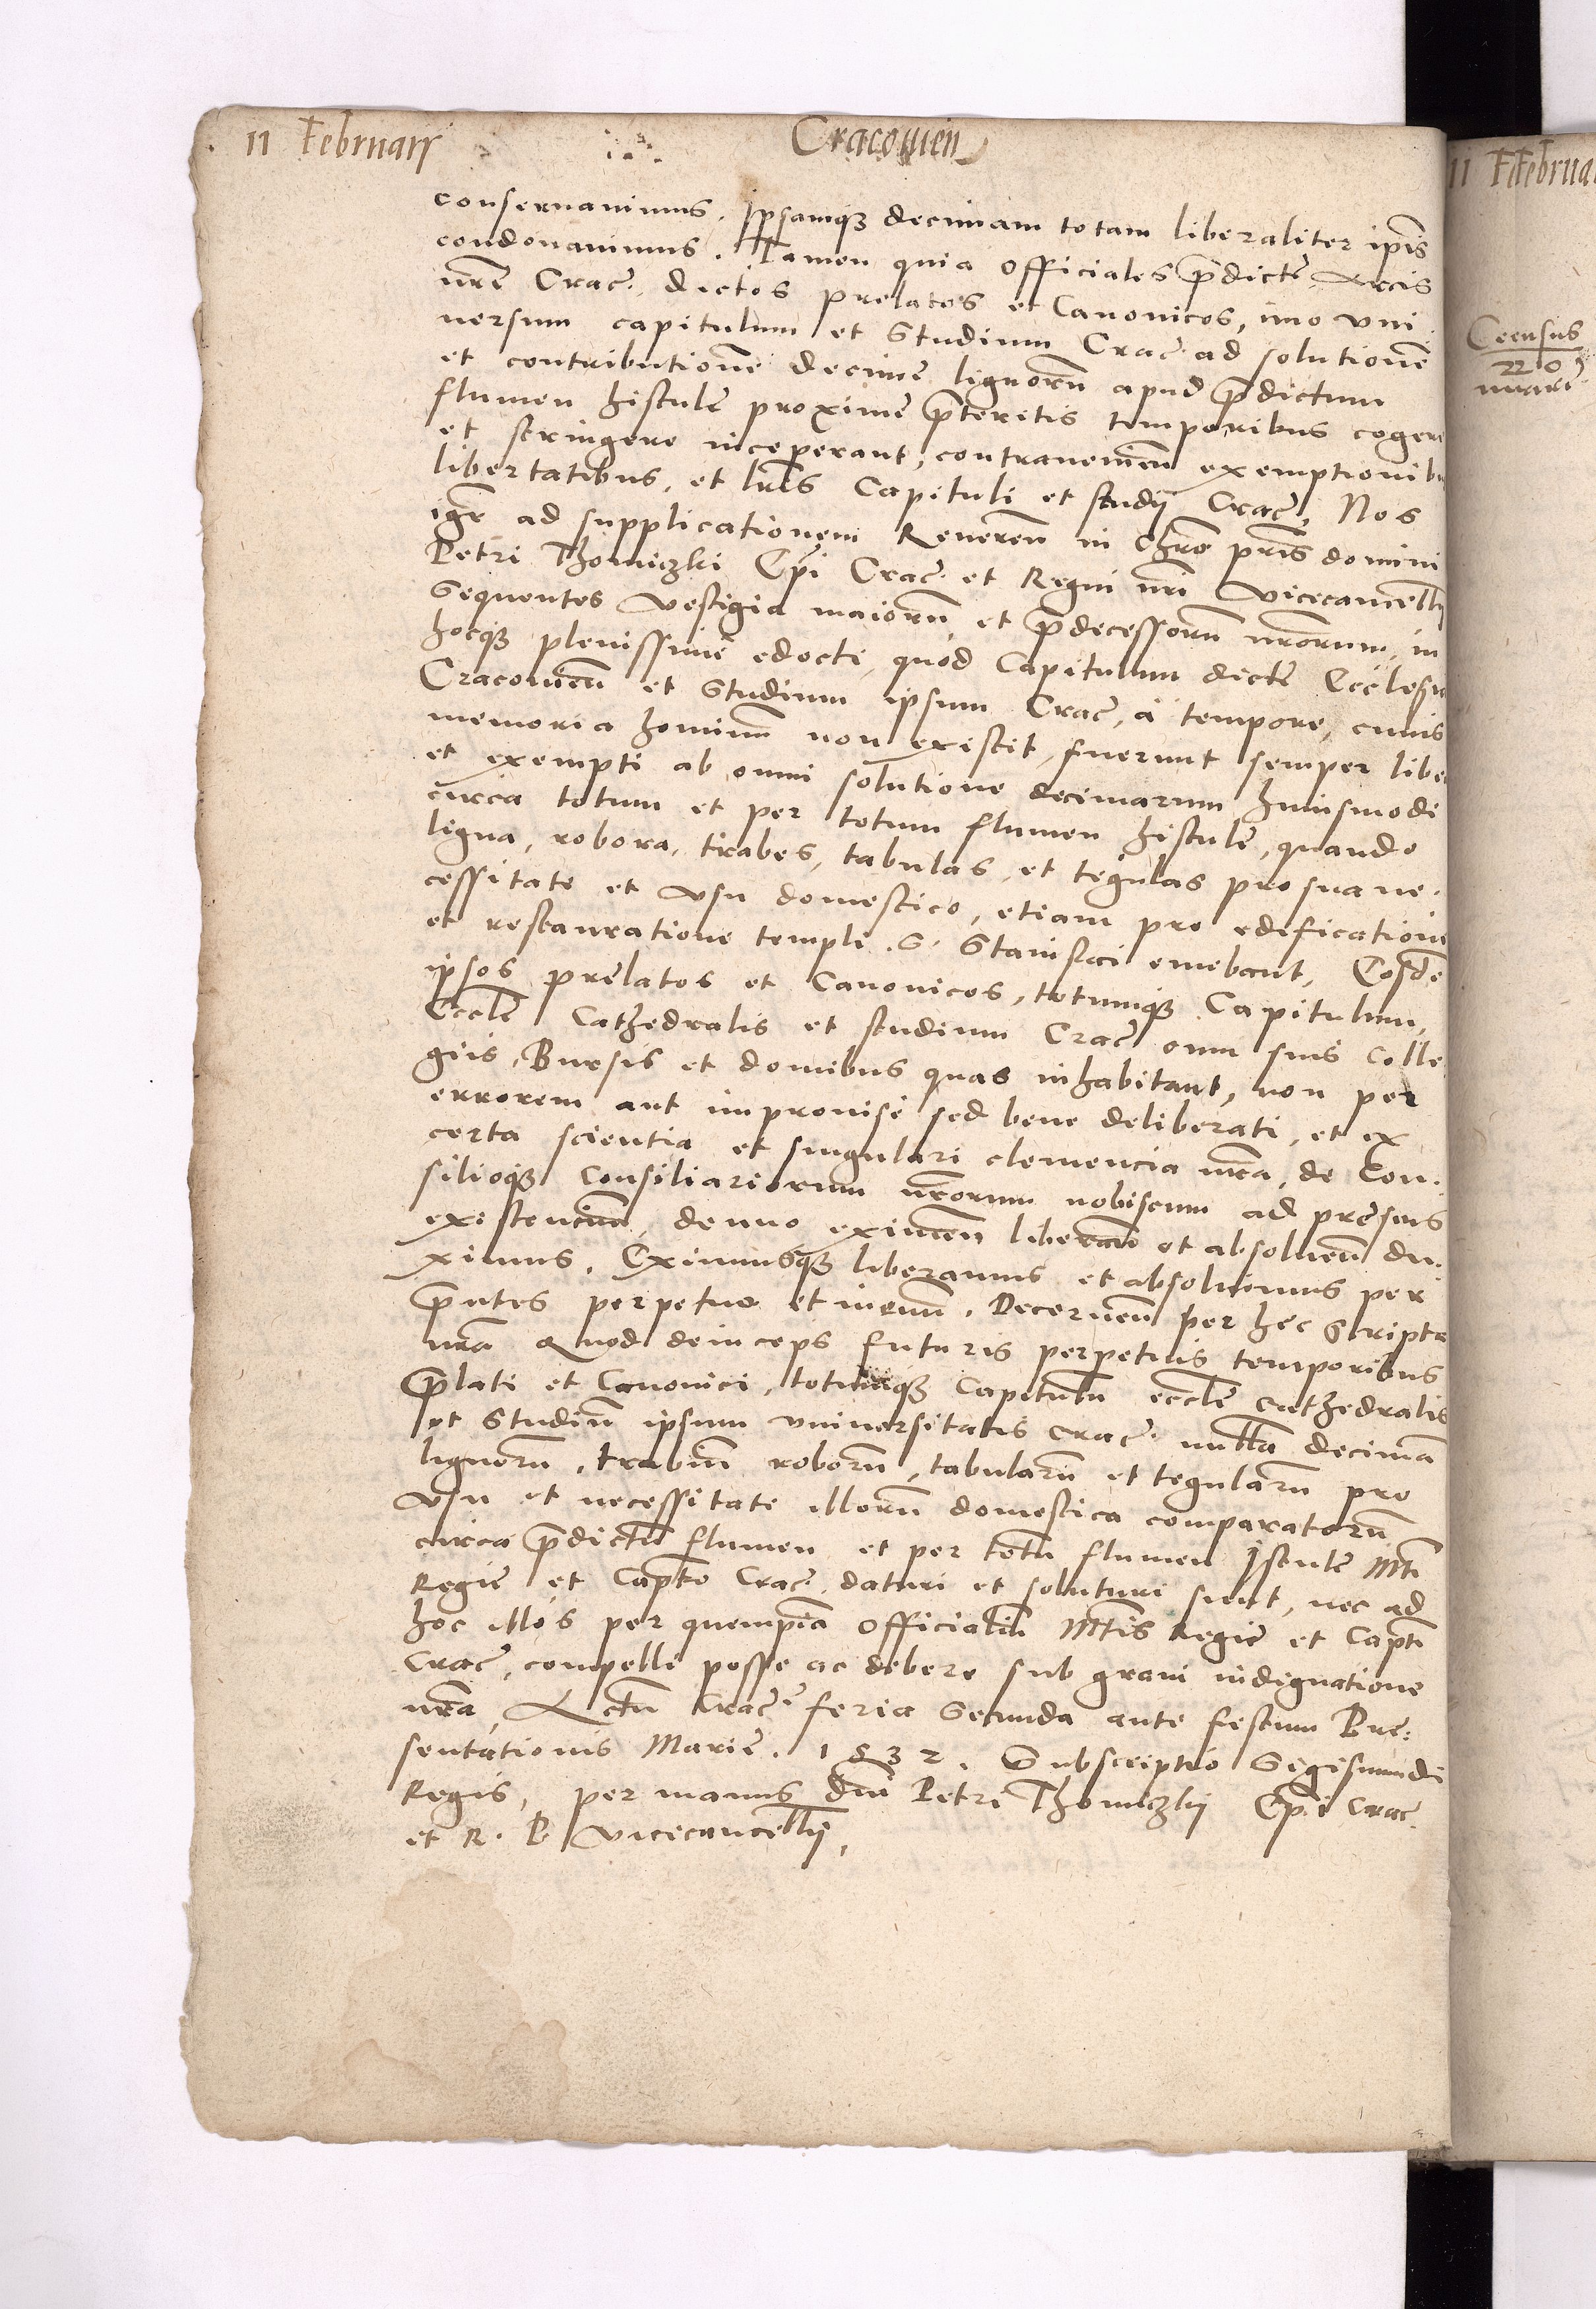 11 Februarÿ Cracovien
conservavimus. Ipsamq3 decimam totam liberaliter ipīs
condonavimus. Tamen quia Officiales p̄dictę Arcis
nr̄ę Crac. dictos prelatos et Canonicos, imo vni
versum capitulum et Studium Crac. ad solutionē
et contributionē decimę lignorū apud p̄dictum
flumen Hisculę proximę p̄teritis temporibus cogere
et stringere inceperant, contraveniēn exemptionibu
libertatibus, et lr̄is Capituli et studÿ Crac. Nos
igr̄ ad supplicationem Reverēn in Chr̄o pr̄is domini
Petri Thomiczki Ep̄i Crac. et Regni nr̄i Vicecancellÿ
Sequentes vestigia maiorū et p̄decessorū nr̄orum, in
hocq3 plenissimę edocti, quod Capitulum dictę Eccles
Cracovien̄ et Studium ipsum Crac, à tempore, cuius
memoria hominū non existit, fuerunt semper libe
et exempti ab omni solutione decimarum huiusmodi
circa totum et per totum flumen Hisculę, quando
ligna, robora, trabes, tabulas, et tegulas pro sua ne.
cessitate et vsu domestico, etiam pro edificatione
et restauratione templi S. Stanislai emebant, Eosdē
ipsos prelatos et Canonicos, totumq3 Capitulum
Eccl̄ę Cathedralis et studium Crac cum suis Colle
giis, Bursis et domibus quas inhabitant, non per
errorem aut improvisę sed bene deliberati, et ex
certa scientia et singulari clemencia nr̄a, de Con.
silioq3 Consiliariorum nr̄orum nobiscum ad presens
existenciū, denuo eximēn liberan̄ et absolvēn du.
ximus. Eximusq3 liberamus et absolvimus per
p̄ntes perpetuo et in ęvū. Decernēn per hęc Scripta
nr̄a Quod deinceps futuris perpetuis temporibus
p̄lati et Canonici, totumq3 Capitulū eccl̄ę cathedralis
et Studiū ipsum vniversitatis Crac. nullā decimā
lignorū, trabiū roborū, tabularū et tegularū pro
vsu et necessitate illorū domestica comparatorū
circa p̄dictū flumen et per totū flumen Isculę Mti
Regię et Capt̄o Crac. daturi et soluturi sient, nec ad
hoc illos per quempiā officialiū Mt̄is Regię et Capt̄i
Crac, compelli posse ac debere sub gravi indignatione
nr̄a, Actū Crac. feria Secunda ante festum Prę:
sentationis Marię. 1532. Subscriptio Sigismundi
Regis, per manus dn̄i Petri Thomiczkÿ Ep̄i Crac.
et R. P. Vicecancellÿ,
11 Februa
Census
220